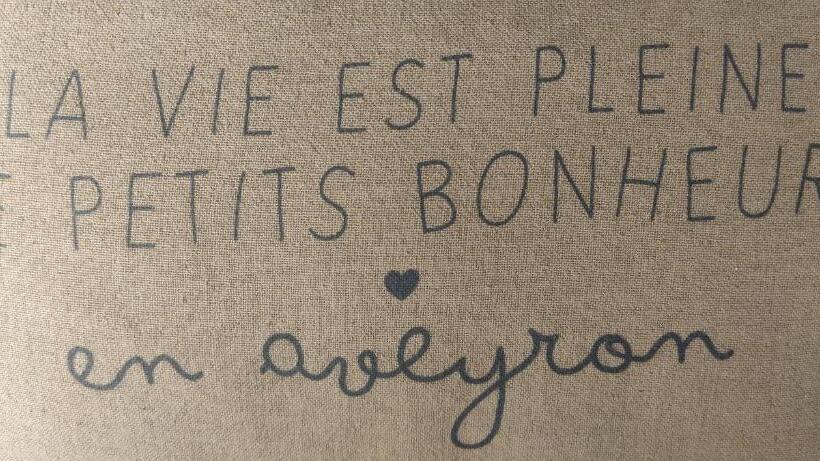 LA VIE EST PLEINE
E PETITS BONHEUR
en aveyron